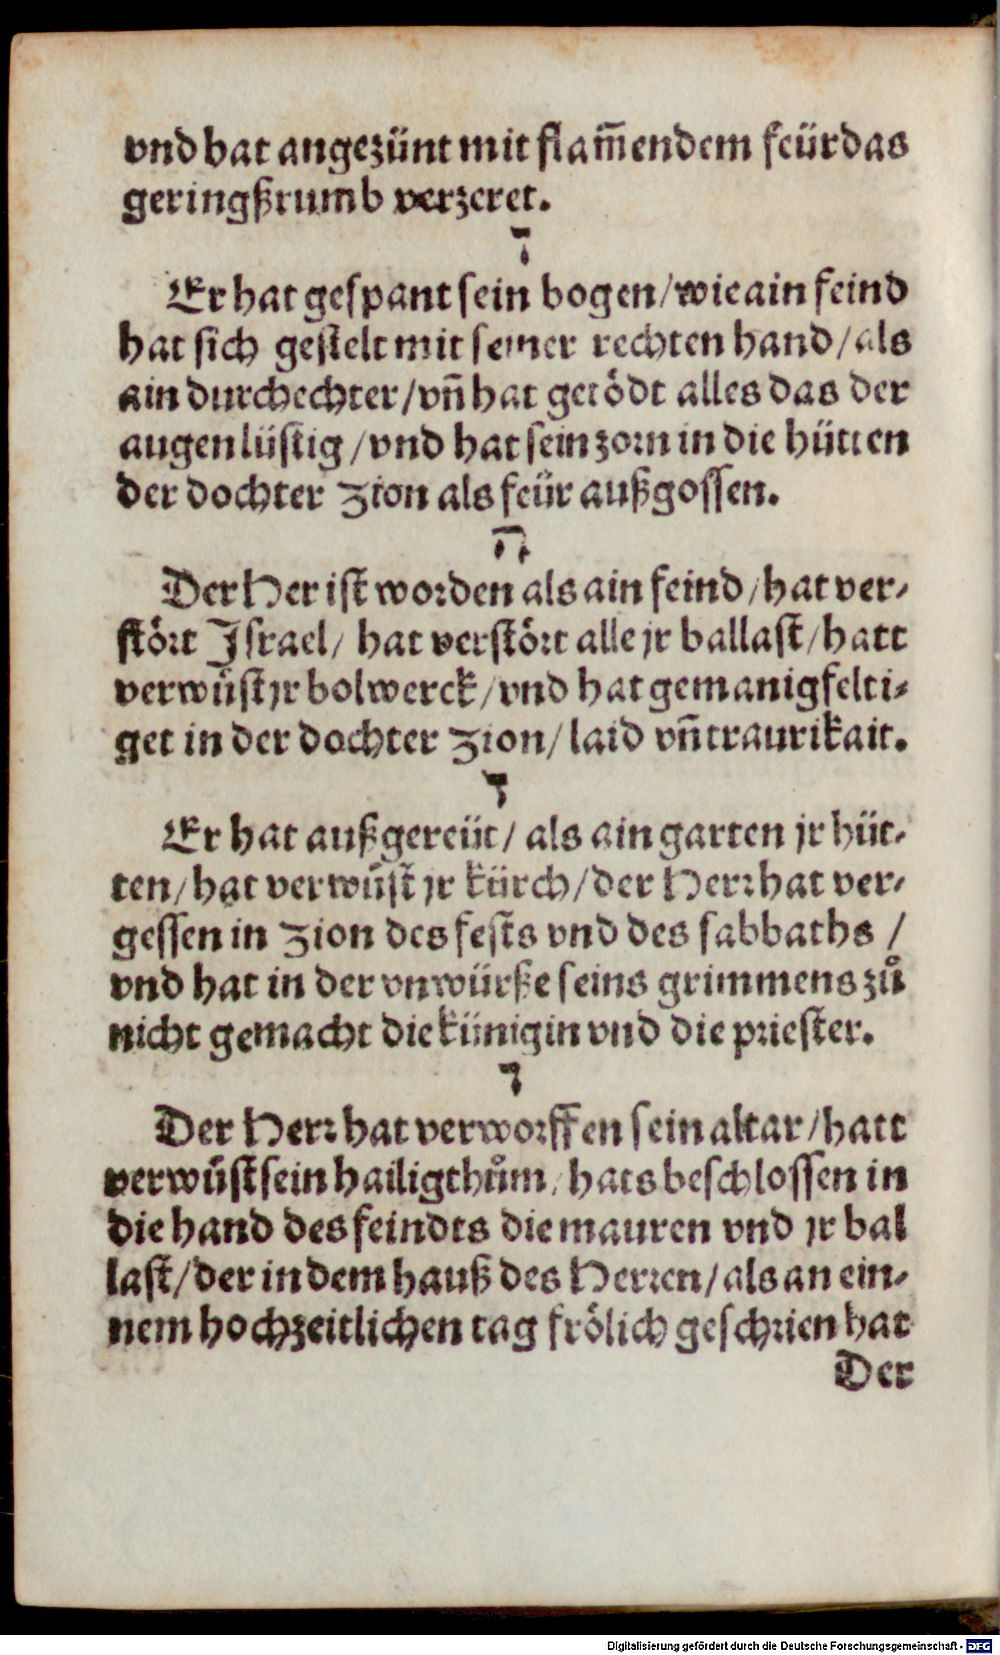 vnd hat angezünt mit flam̄endem feür das
geringßrumb verzeret.
ד
Er hat gespant sein bogen/wie ain feind
hat sich gestelt mit seiner rechten hand/als
ain durchechter/vn̄ hat getödt alles das der
augen lüstig/vnd hat sein zorn in die hütten
der dochter Zion als feür außgossen.
ה
Der Her ist worden als ain feind/hat ver-
stört Israel/ hat verstört alle jr ballast/hatt
verwüst jr bolwerck/vnd hat gemanigfelti-
get in der dochter Zion/ laid vn̄ traurikait.
ו
Er hat außgereüt/ als ain garten jr hüt-
ten/hat verwüst jr kürch/der Herr hat ver-
gessen in Zion des fests vnd des sabbaths /
vnd hat in der vnwürße seins grimmens zů
nicht gemacht die künigin vnd die priester.
ז
Der Herr hat verworffen sein altar/hatt
verwüst sein hailigthům/hats beschlossen in
die hand des feindts die mauren vnd jr bal
last/der in dem hauß des Herren/als an ein-
nem hochzeitlichen tag frölich geschrien hat
Der
Digitalisierung gefördert durch die Deutsche Forschungsgemeinschaft - DFG